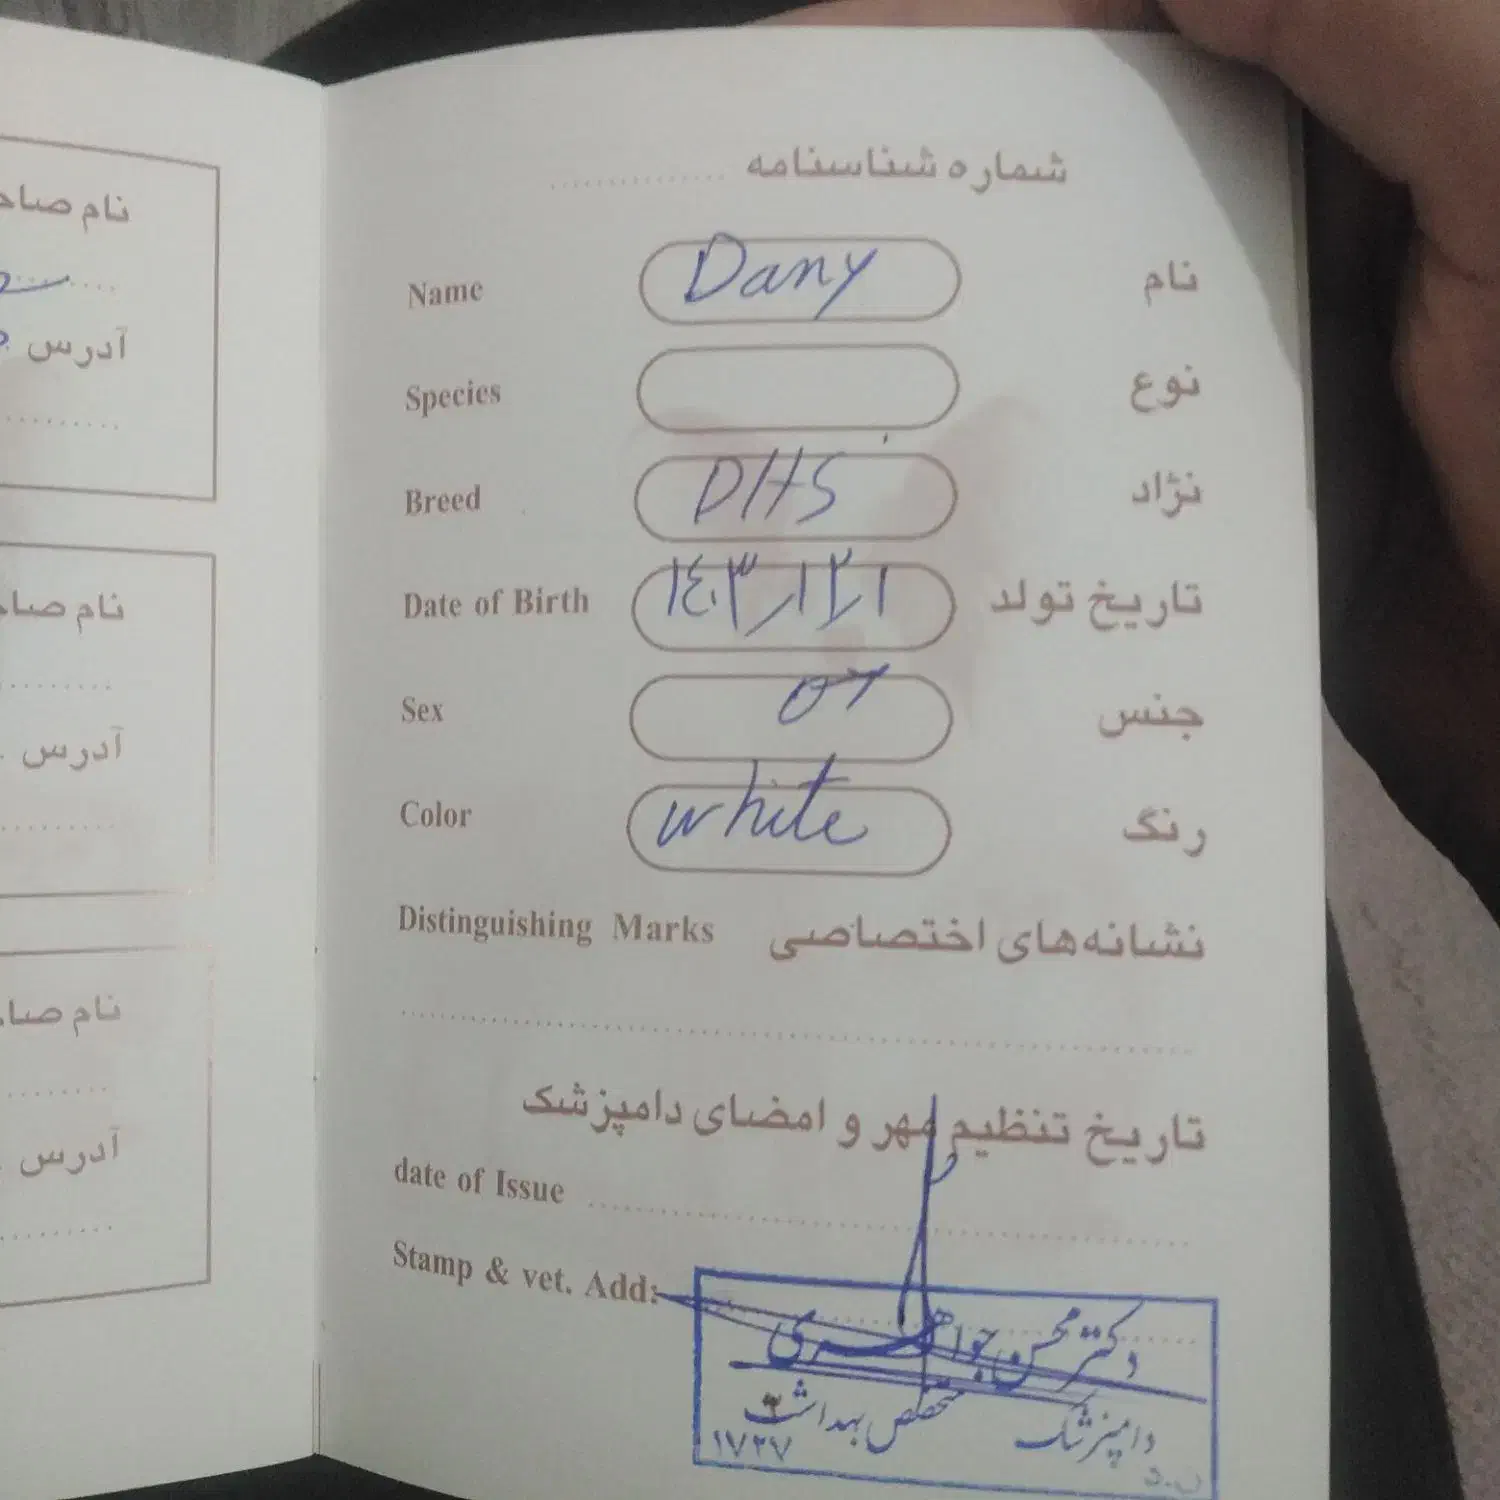 شماره شناسنامه ..............
Name Dany نام
Species نوع
Breed DHS نژاد
Date of Birth ۱۴۰۳/۱۲/۱ تاریخ تولد
Sex ♂ جنس
Color white رنگ
Distinguishing Marks نشانه‌های اختصاصی
تاریخ تنظیم مهر و امضای دامپزشک
date of Issue
Stamp & vet. Add:
دکتر محسن جواهری
دامپزشک متخصص بهداشت
۱۷۲۷
نام
آدرس
نام
آدرس
نام
آدرس